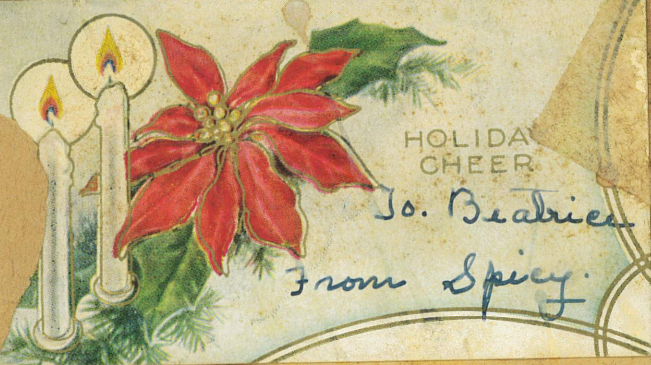 HOLIDA
CHEER
To. Beatrice
From Spicy.